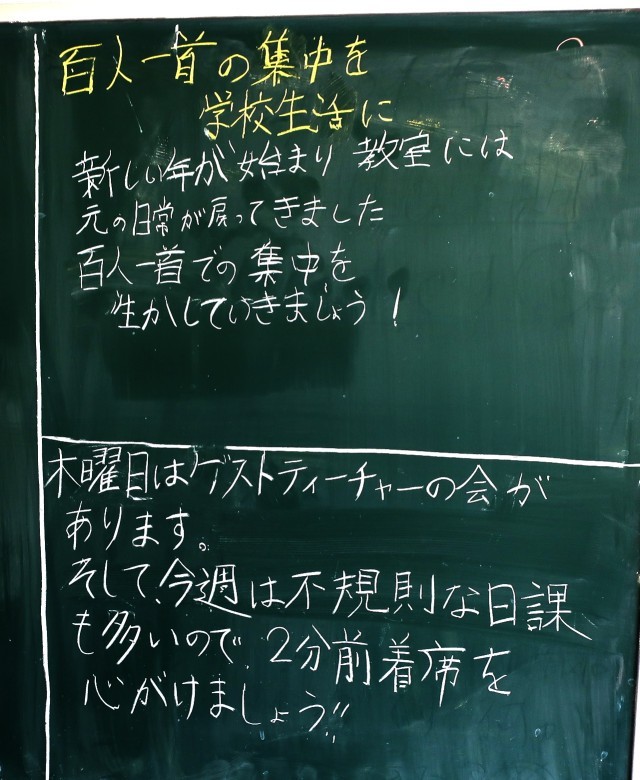 百人一首の集中を
学校生活に
新しい年が始まり 教室には
元の日常が戻ってきました
百人一首での集中を
生かしていきましょう！
木曜日はゲストティーチャーの会が
あります。
そして、今週は不規則な日課
も多いので、2分前着席を
心がけましょう!!